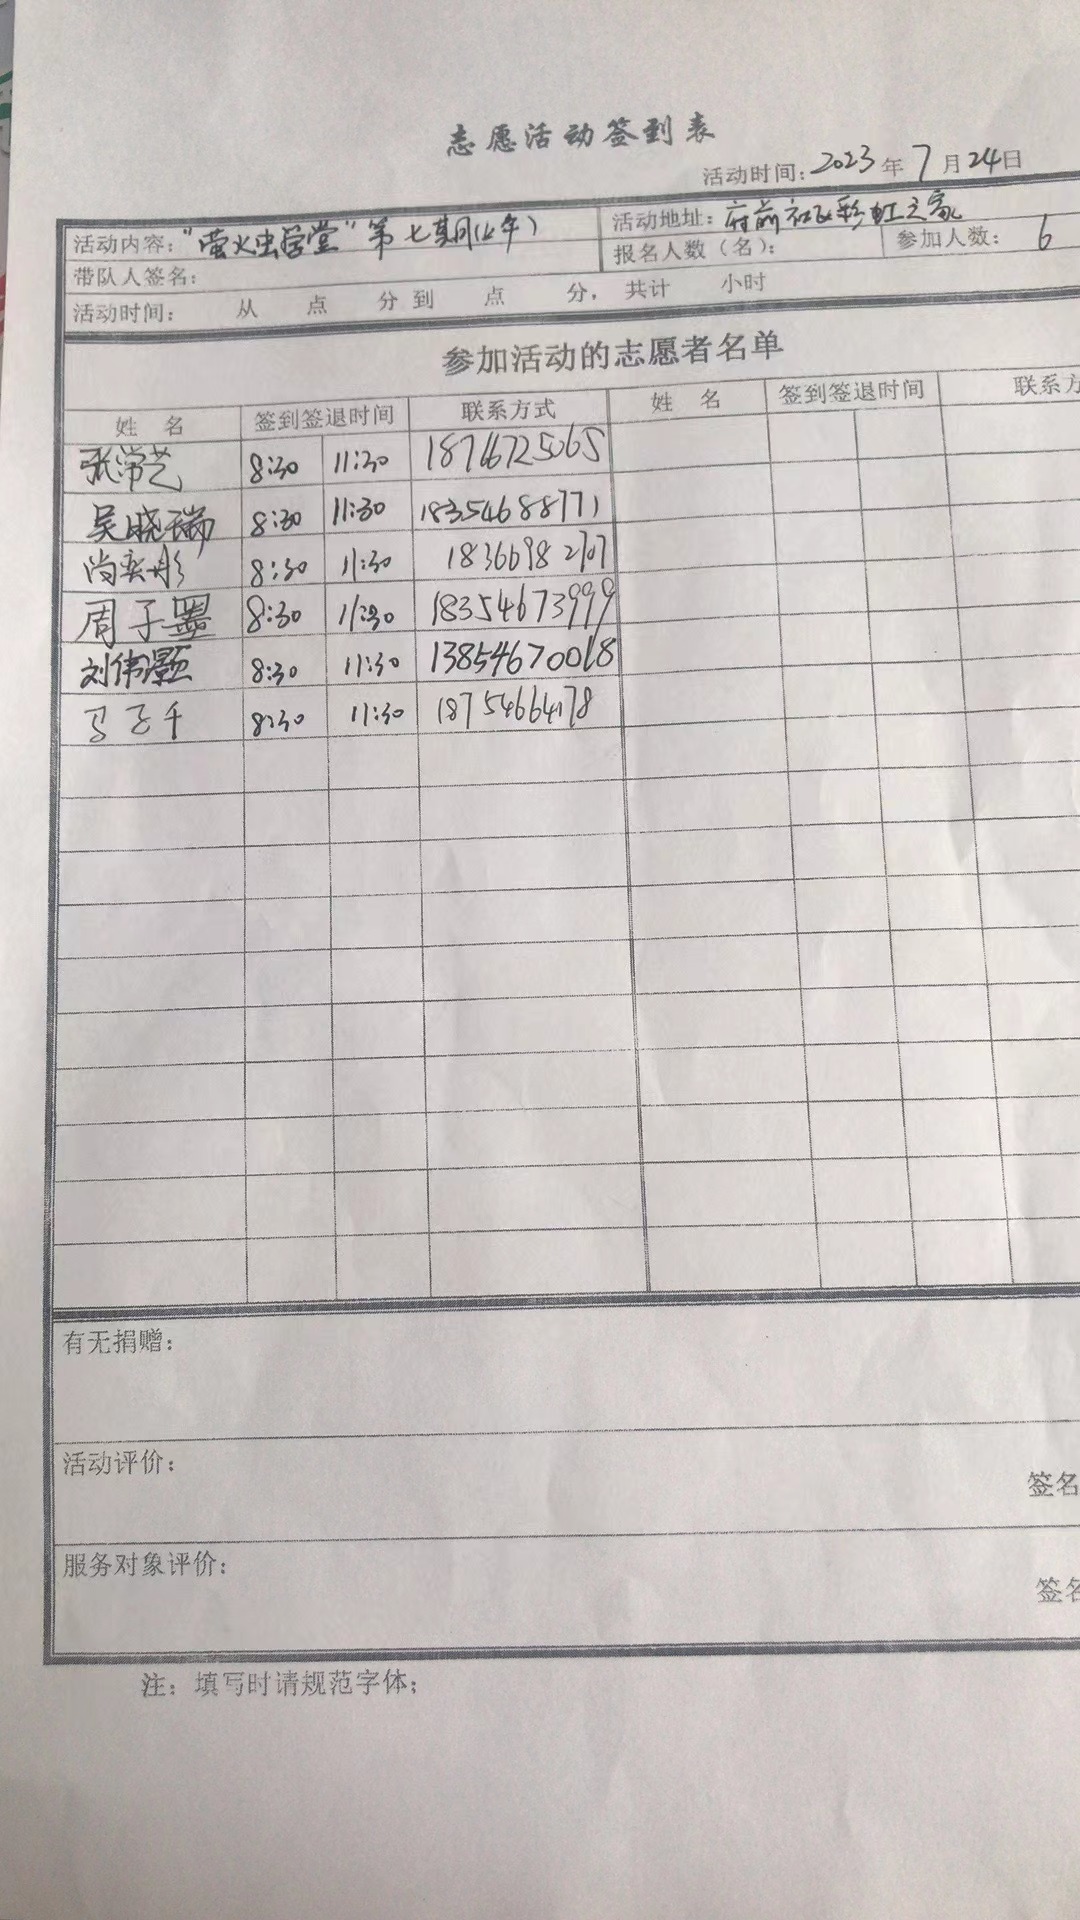 志愿活动签到表
活动时间：2023年7月24日
活动内容："萤火虫学堂"第七期(上午)
活动地址：府前社区彩虹之家
报名人数（名）： 参加人数： 6
带队人签名：
活动时间： 从 点 分到 点 分，共计 小时
参加活动的志愿者名单
姓 名 签到签退时间 联系方式 姓 名 签到签退时间 联系方
张常艺 8:30 11:30
吴晓瑞 8:30 11:30 18354688771
尚奕彤 8:30 11:30
周子墨 8:30 11:30 18354673999
刘伟灏 8:30 11:30 13854670018
8:30 11:30 18754664178
有无捐赠：
活动评价：
签名
服务对象评价：
签名
注：填写时请规范字体；